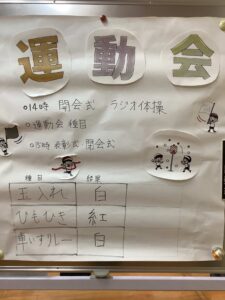 運動会
○14時 開会式 ラジオ体操
○運動会 種目
○15時 表彰式 閉会式
種目 結果
玉入れ 白
ひもひき 紅
車いすリレー 白